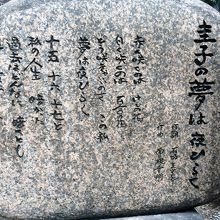 圭子の夢は夜ひらく
赤く咲くのは けしの花
白く咲くのは 百合の花
どう咲きゃいいのさ この私
夢は夜ひらく
十五 十六 十七と
私の人生 暗かった
過去はどんなに 暗くとも
夢は夜ひらく